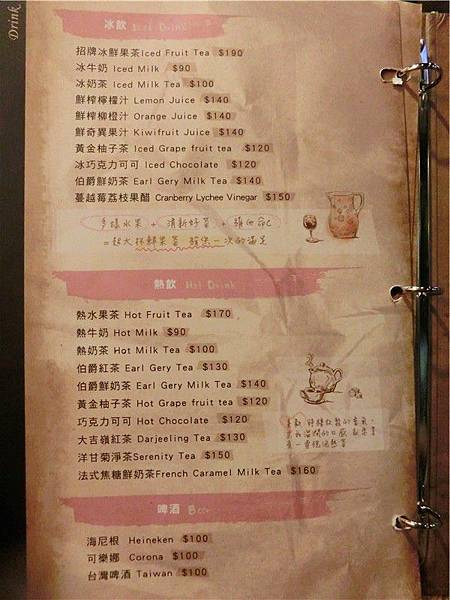 Drink
冰飲 Iced Drink
招牌冰鮮果茶Iced Fruit Tea $190
冰牛奶 Iced Milk $90
冰奶茶 Iced Milk Tea $100
鮮榨檸檬汁 Lemon Juice $140
鮮榨柳橙汁 Orange Juice $140
鮮奇異果汁 Kiwifruit Juice $140
黃金柚子茶 Iced Grape fruit tea $120
冰巧克力可可 Iced Chocolate $120
伯爵鮮奶茶 Earl Gery Milk Tea $140
蔓越莓荔枝果醋 Cranberry Lychee Vinegar $150
多樣水果 + 清新好茶 + 維他命C
= 超大杯鮮果茶 一次的滿足
熱飲 Hot Drink
熱水果茶 Hot Fruit Tea $170
熱牛奶 Hot Milk $90
熱奶茶 Hot Milk Tea $100
伯爵紅茶 Earl Gery Tea $130
伯爵鮮奶茶 Earl Gery Milk Tea $140
黃金柚子茶 Hot Grape fruit tea $120
巧克力可可 Hot Chocolate $120
大吉嶺紅茶 Darjeeling Tea $130
洋甘菊淨茶Serenity Tea $150
法式焦糖鮮奶茶French Caramel Milk Tea $160
啤酒 Beer
海尼根 Heineken $100
可樂娜 Corona $100
台灣啤酒 Taiwan $100